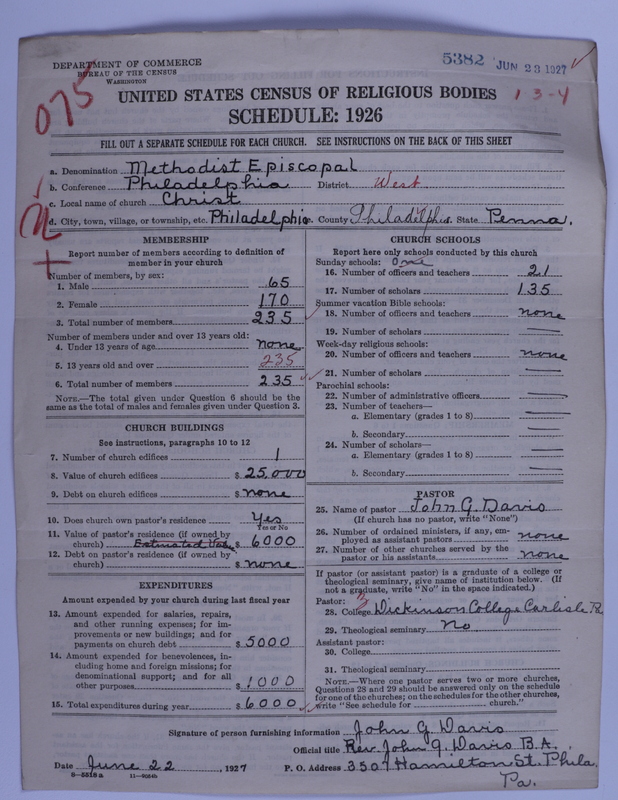 DEPARTMENT OF COMMERCE
BUREAU OF THE CENSUS
WASHINGTON
5382 JUN 23 1927
075
UNITED STATES CENSUS OF RELIGIOUS BODIES
1-3-4
SCHEDULE: 1926
FILL OUT A SEPARATE SCHEDULE FOR EACH CHURCH. SEE INSTRUCTIONS ON THE BACK OF THIS SHEET
a. Denomination Methodist Episcopal
b. Conference Philadelphia District West
c. Local name of church Christ
d. City, town, village, or township, etc. Philadelphia County Philadelphia State Penna.
MEMBERSHIP
Report number of members according to definition of
member in your church
Number of members, by sex:
1. Male 65
2. Female 170
3. Total number of members 235
Number of members under and over 13 years old:
4. Under 13 years of age none
5. 13 years old and over 235
6. Total number of members 235
NOTE.—The total given under Question 6 should be
same as the total of males and females given under Question 3.
CHURCH BUILDINGS
See instructions, paragraphs 10 to 12
7. Number of church edifices 1
8. Value of church edifices $ 25,000
9. Debt on church edifices $ none
10. Does church own pastor's residence Yes
Yes or No
11. Value of pastor's residence (if owned by
church) Estimated Value $ 6000
12. Debt on pastor's residence (if owned by
church) $ none
EXPENDITURES
Amount expended by your church during last fiscal year
13. Amount expended for salaries, repairs,
and other running expenses; for im-
provements or new buildings; and for
payments on church debt $ 5000
14. Amount expended for benevolences, in-
cluding home and foreign missions; for
denominational support; and for all
other purposes $ 1000
15. Total expenditures during year $ 6000
CHURCH SCHOOLS
Report here only schools conducted by this church
Sunday schools: One
16. Number of officers and teachers 21
17. Number of scholars 135
Summer vacation Bible schools:
18. Number of officers and teachers none
19. Number of scholars —
Week-day religious schools:
20. Number of officers and teachers none
21. Number of scholars —
Parochial schools:
22. Number of administrative officers —
23. Number of teachers—
a. Elementary (grades 1 to 8) —
b. Secondary —
24. Number of scholars—
a. Elementary (grades 1 to 8) —
b. Secondary —
PASTOR
25. Name of pastor John G. Davis
(If church has no pastor, write "None")
26. Number of ordained ministers, if any, em-
ployed as assistant pastors none
27. Number of other churches served by the
pastor or his assistants none
If pastor (or assistant pastor) is a graduate of a college or
theological seminary, give name of institution below. (If
not a graduate, write "No" in the space indicated.)
Pastor:
28. College Dickinson College Carlisle Pa
29. Theological seminary No
Assistant pastor:
30. College
31. Theological seminary
NOTE.—Where one pastor serves two or more churches,
Questions 28 and 29 should be answered only on the schedule
for one of the churches; on the schedules for the other churches,
write "See schedule for church."
Signature of person furnishing information John G. Davis
Official title Rev. John G. Davis B.A.
Date June 22, 1927 P. O. Address 3507 Hamilton St. Phila.
Pa.
8—5518a 11—9264b